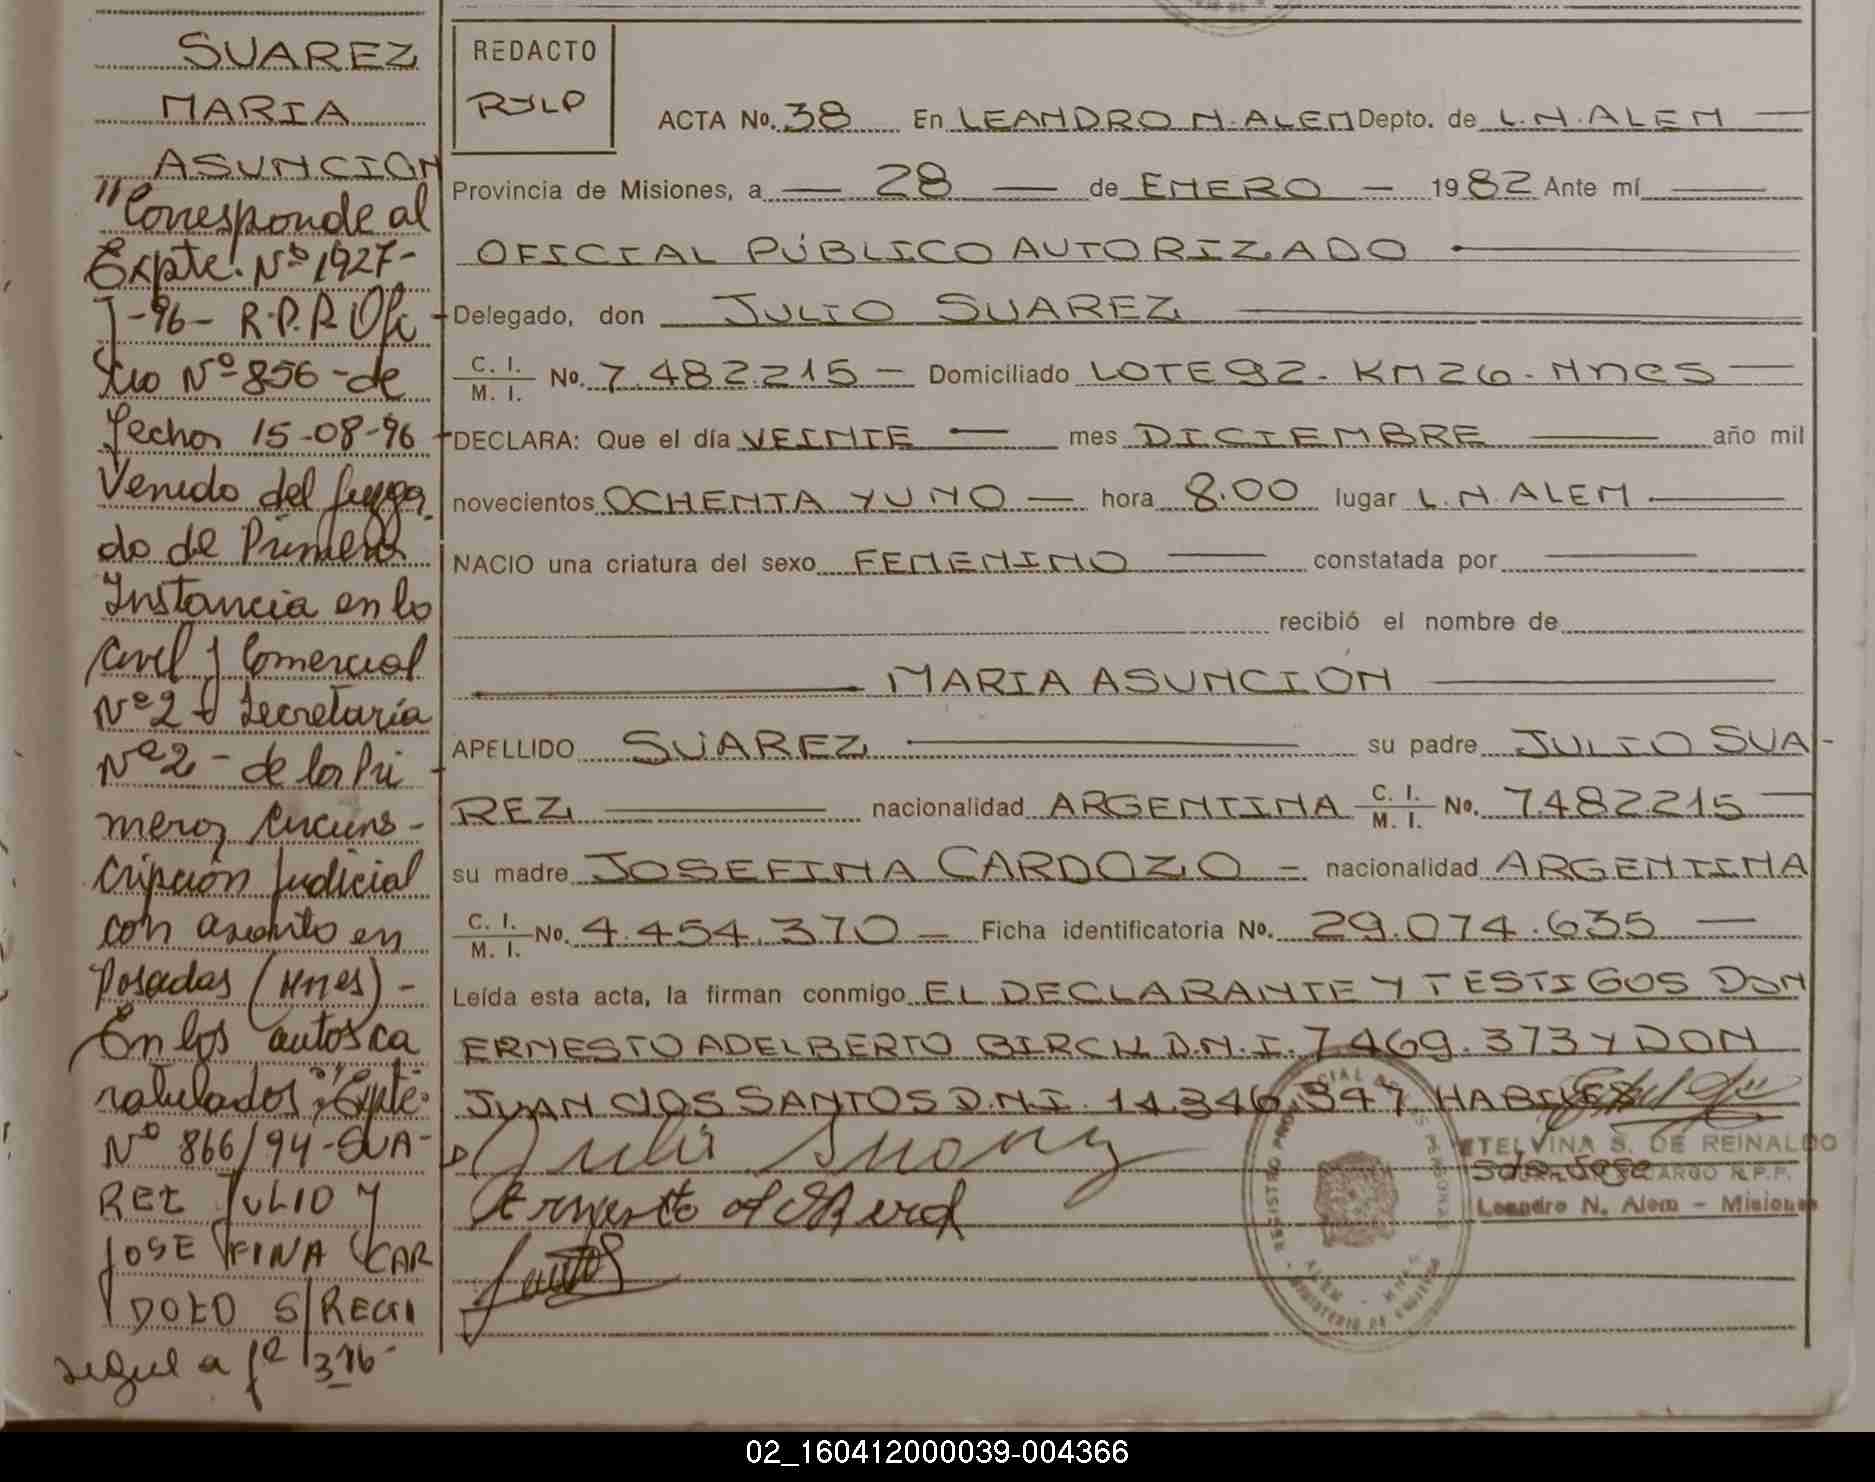 SUAREZ
MARIA
ASUNCION
"Corresponde al
Expte. Nº 1927-
J-96- R.P.P. Ofi
cio Nº 856 -de
fecha 15-08-96
Venido del Juzga
do de Primera
Instancia en lo
Civil y Comercial
Nº 2 - Secretaría
Nº 2 - de la Pri
mera Circuns-
cripción Judicial
con asiento en
Posadas (Mnes) -
En los autos ca
ratulados: "Expte.
Nº 866/94-SUA-
REZ JULIO Y
JOSEFINA CAR
DOZO S/REGI
segue a fº 376-
REDACTO
RYLP
ACTA No. 38 En LEANDRO N. ALEM Depto. de L.N. ALEM
Provincia de Misiones, a 28 de ENERO 1982 Ante mí
OFICIAL PÚBLICO AUTORIZADO
Delegado, don JULIO SUAREZ
C. I. M. I. No. 7.482.215 - Domiciliado LOTE 92. KM 26. Mnes
DECLARA: Que el día VEINTE mes DICIEMBRE año mil
novecientos OCHENTA Y UNO hora 8.00 lugar L.N. ALEM
NACIO una criatura del sexo FEMENINO constatada por
recibió el nombre de
MARIA ASUNCION
APELLIDO SUAREZ su padre JULIO SUA-
REZ nacionalidad ARGENTINA C. I. M. I. No. 7.482.215
su madre JOSEFINA CARDOZO nacionalidad ARGENTINA
C. I. M. I. No. 4.454.370 Ficha identificatoria No. 29.074.635
Leída esta acta, la firman conmigo EL DECLARANTE Y TESTIGOS DON
ERNESTO ADELBERTO BIRCH D.N.I. 7.469.373 Y DON
JUAN DOS SANTOS D.N.I. 14.346.347 HABILES
ETELVINA S. DE REINALDO
CARGO R.P.P.
Leandro N. Alem - Misiones
02_160412000039-004366